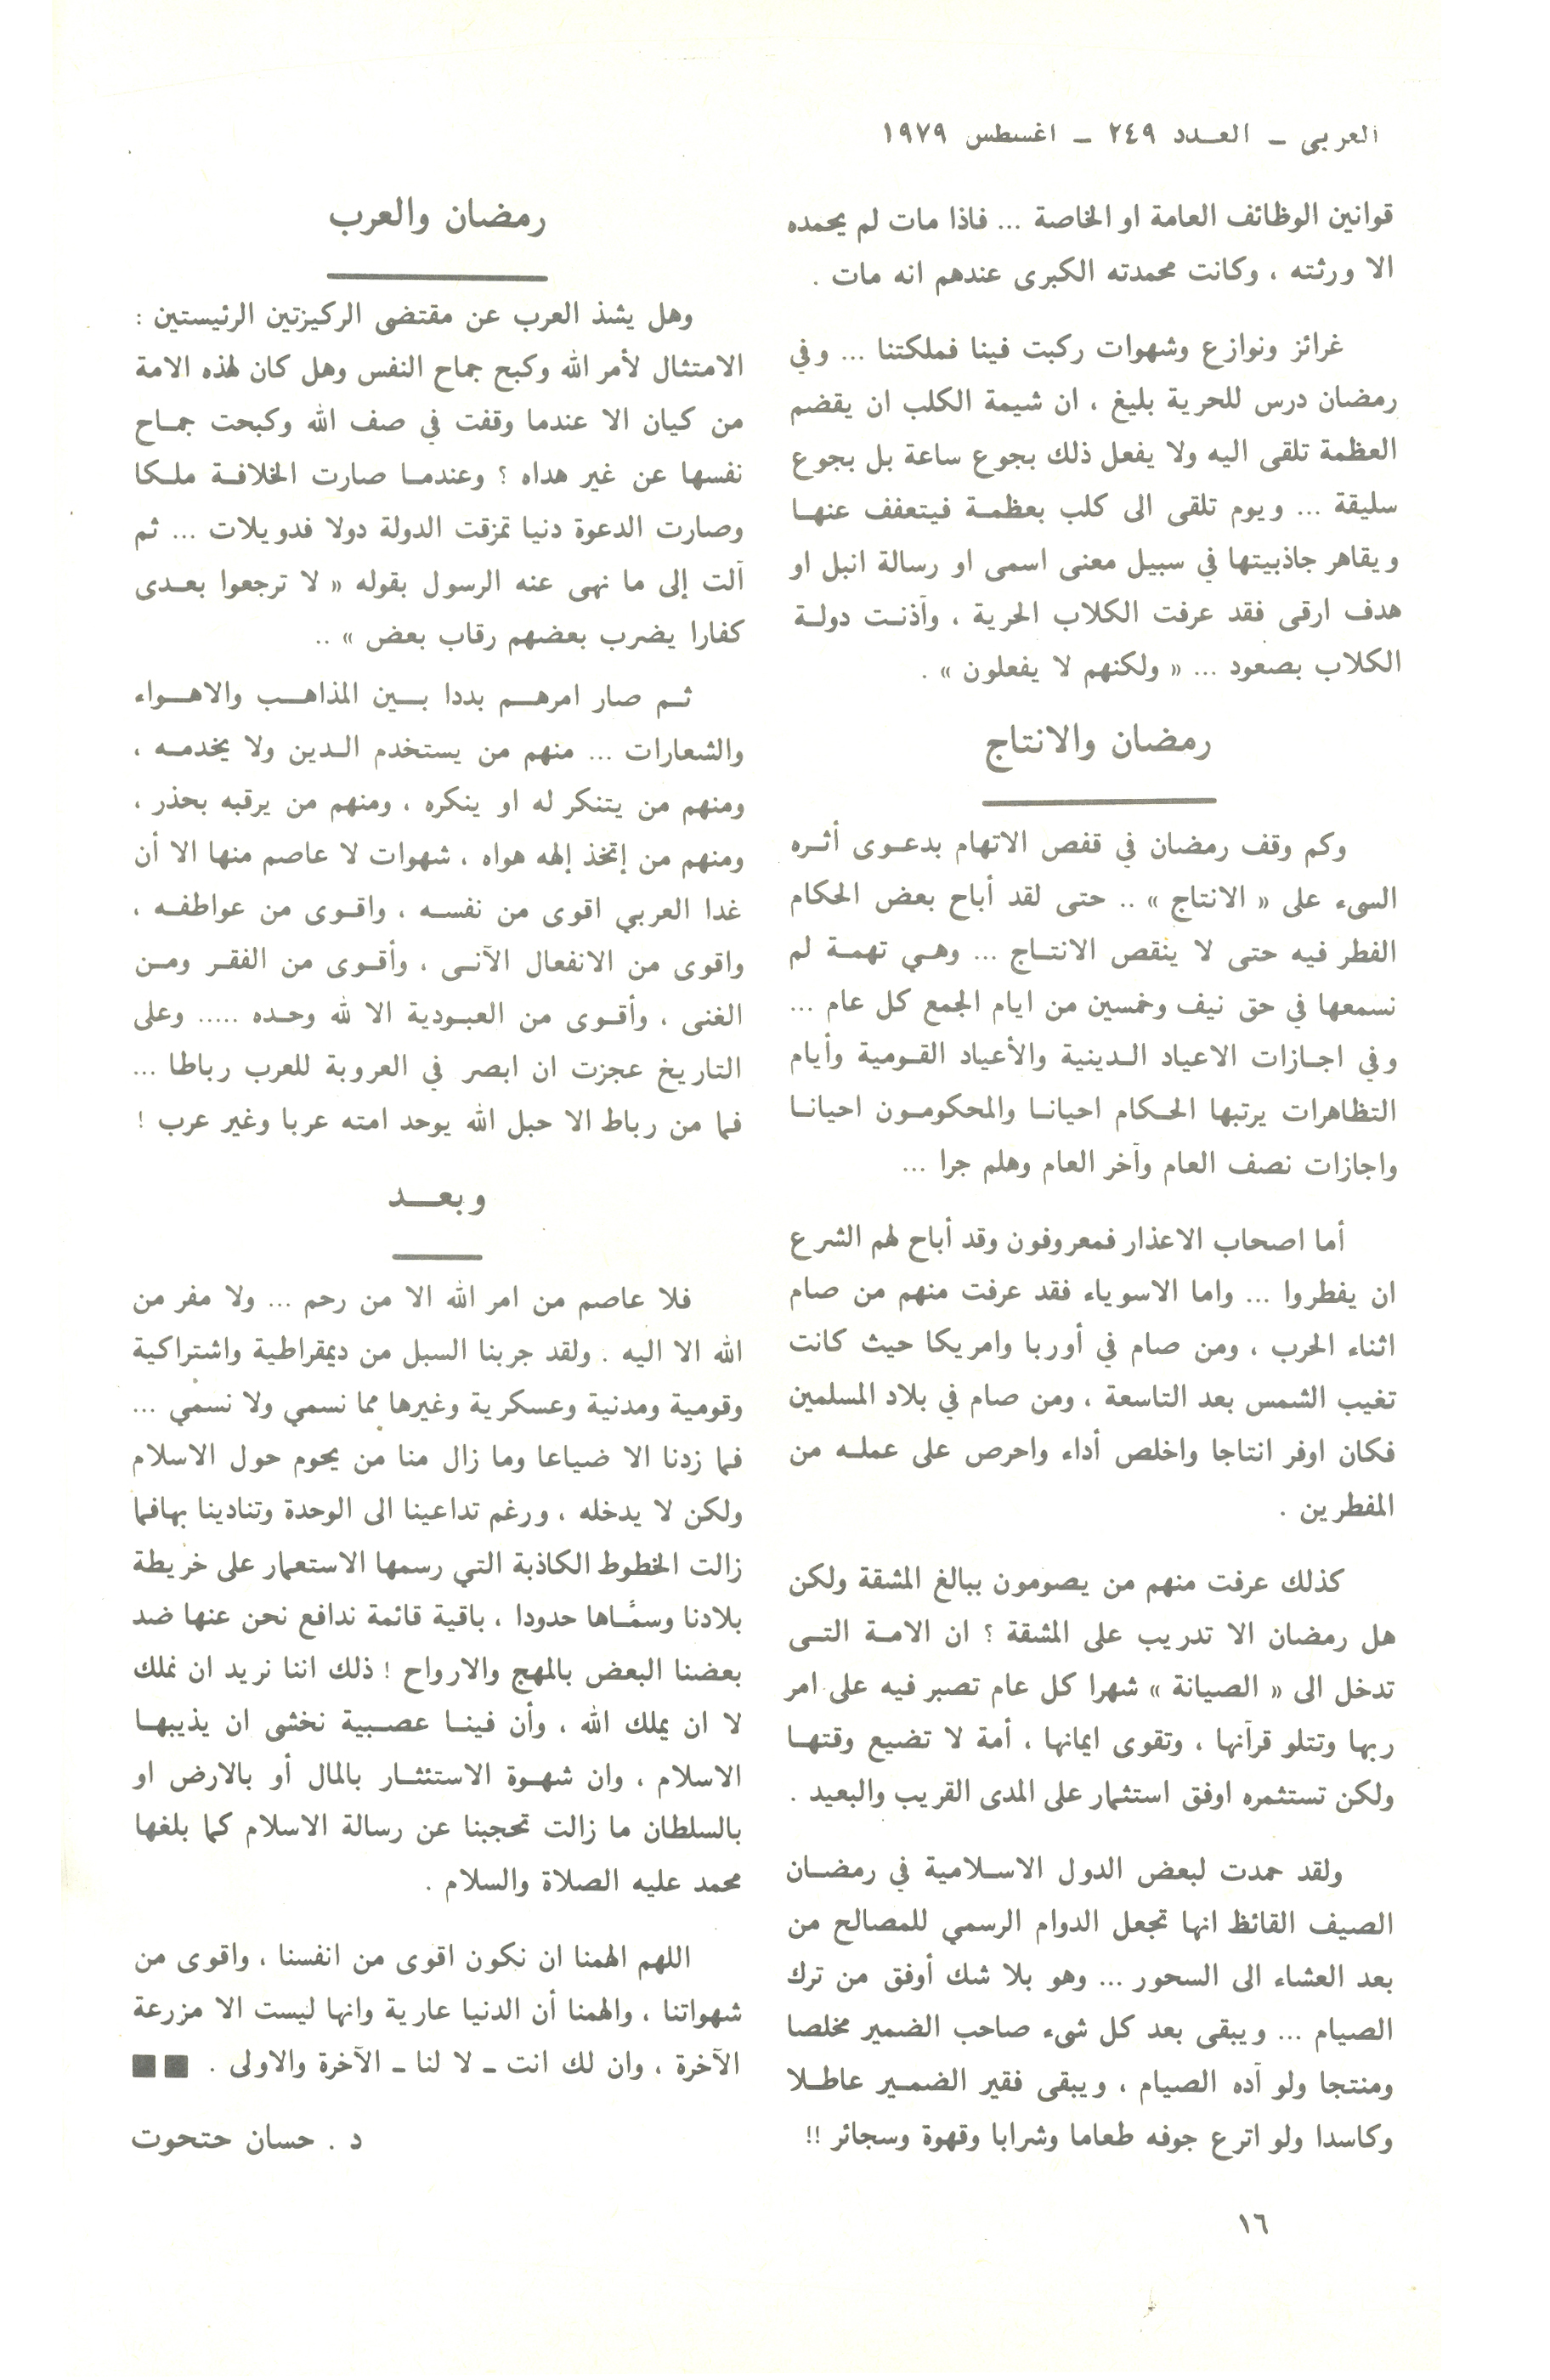 العربى ـ العـدد ٢٤٩ ـ اغسطس ١٩٧٩
قوانين الوظائف العامة او الخاصة ... فاذا مات لم يحمده
الا ورثته ، وكانت محمدته الكبرى عندهم انه مات .
غرائز ونوازع وشهوات ركبت فينا فملكتنا ... وفي
رمضان درس للحرية بليغ ، ان شيمة الكلب ان يقضم
العظمة تلقى اليه ولا يفعل ذلك بجوع ساعة بل بجوع
سليقة ... ويوم تلقى الى كلب بعظمـة فيتعفف عنهـا
ويقاهر جاذبيتها في سبيل معنى اسمى او رسالة انبل او
هدف ارقى فقد عرفت الكلاب الحرية ، وآذنـت دولـة
الكلاب بصعود ... « ولكنهم لا يفعلون » .
رمضان والانتاج
وكم وقف رمضان في قفص الاتهام بدعـوى أثـره
السىء على « الانتاج » .. حتى لقد أباح بعض الحكام
الفطر فيه حتى لا ينقص الانتـاج ... وهـي تهمـة لم
نسمعها في حق نيف وخمسين من ايام الجمع كل عام ...
وفي اجـازات الاعياد الـدينية والأعياد القـومية وأيام
التظاهرات يرتبها الحـكام احيانـا والمحكومـون احيانـا
واجازات نصف العام وآخر العام وهلم جرا ...
أما اصحاب الاعذار فمعروفون وقد أباح لهم الشرع
ان يفطروا ... واما الاسوياء فقد عرفت منهم من صام
اثناء الحرب ، ومن صام في أوربا وامريكا حيث كانت
تغيب الشمس بعد التاسعة ، ومن صام في بلاد المسلمين
فكان اوفر انتاجا واخلص أداء واحرص على عملـه من
المفطرين .
كذلك عرفت منهم من يصومون ببالغ المشقة ولكن
هل رمضان الا تدريب على المشقة ؟ ان الامـة التـى
تدخل الى « الصيانة » شهرا كل عام تصبر فيه على امر
ربها وتتلو قرآنها ، وتقوى ايمانها ، أمة لا تضيع وقتهـا
ولكن تستثمره اوفق استثمار على المدى القريب والبعيد .
ولقد حمدت لبعض الدول الاسـلامية في رمضـان
الصيف القائظ انها تجعل الدوام الرسمي للمصالح من
بعد العشاء الى السحور ... وهو بلا شك أوفق من ترك
الصيام ... ويبقى بعد كل شىء صاحب الضمير مخلصا
ومنتجا ولو آده الصيام ، ويبقى فقير الضمـير عاطـلا
وكاسدا ولو اترع جوفه طعاما وشرابا وقهوة وسجائر !!
رمضان والعرب
وهل يشذ العرب عن مقتضى الركيزتين الرئيستين :
الامتثال لأمر الله وكبح جماح النفس وهل كان لهذه الامة
من كيان الا عندما وقفت في صف الله وكبحت جمـاح
نفسها عن غير هداه ؟ وعندمـا صارت الخلافـة ملـكا
وصارت الدعوة دنيا تمزقت الدولة دولا فدويلات ... ثم
آلت إلى ما نهى عنه الرسول بقوله « لا ترجعوا بعـدى
كفارا يضرب بعضهم رقاب بعض » ..
ثـم صار امرهـم بددا بـين المذاهـب والاهـواء
والشعارات ... منهم من يستخدم الـدين ولا يخدمـه ،
ومنهم من يتنكر له او ينكره ، ومنهم من يرقبه بحذر ،
ومنهم من إتخذ إلهه هواه ، شهوات لا عاصم منها الا أن
غدا العربي اقوى من نفسـه ، واقـوى من عواطفـه ،
واقوى من الانفعال الآنـى ، وأقـوى من الفقـر ومـن
الغنى ، وأقـوى من العبـودية الا لله وحـده ..... وعلى
التاريخ عجزت ان ابصر في العروبة للعرب رباطا ...
فما من رباط الا حبل الله يوحد امته عربا وغير عرب !
وبعـــد
فلا عاصم من امر الله الا من رحم ... ولا مفر من
الله الا اليه . ولقد جربنا السبل من ديمقراطية واشتراكية
وقومية ومدنية وعسكرية وغيرها مما نسمي ولا نسمي ...
فما زدنا الا ضياعا وما زال منا من يحوم حول الاسلام
ولكن لا يدخله ، ورغم تداعينا الى الوحدة وتنادينا بهافما
زالت الخطوط الكاذبة التي رسمها الاستعمار على خريطة
بلادنا وسمَّـاها حدودا ، باقية قائمة ندافع نحن عنها ضد
بعضنا البعض بالمهج والارواح ! ذلك اننا نريد ان نملك
لا ان يملك الله ، وأن فينـا عصـبية نخشى ان يذيبهـا
الاسلام ، وان شهـوة الاستئثـار بالمال أو بالارض او
بالسلطان ما زالت تحجبنا عن رسالة الاسلام كما بلغها
محمد عليه الصلاة والسلام .
اللهم الهمنا ان نكون اقوى من انفسنا ، واقوى من
شهواتنا ، والهمنا أن الدنيا عارية وانها ليست الا مزرعة
الآخرة ، وان لك انت ـ لا لنا ـ الآخرة والاولى . ■■
د . حسان حتحوت
١٦